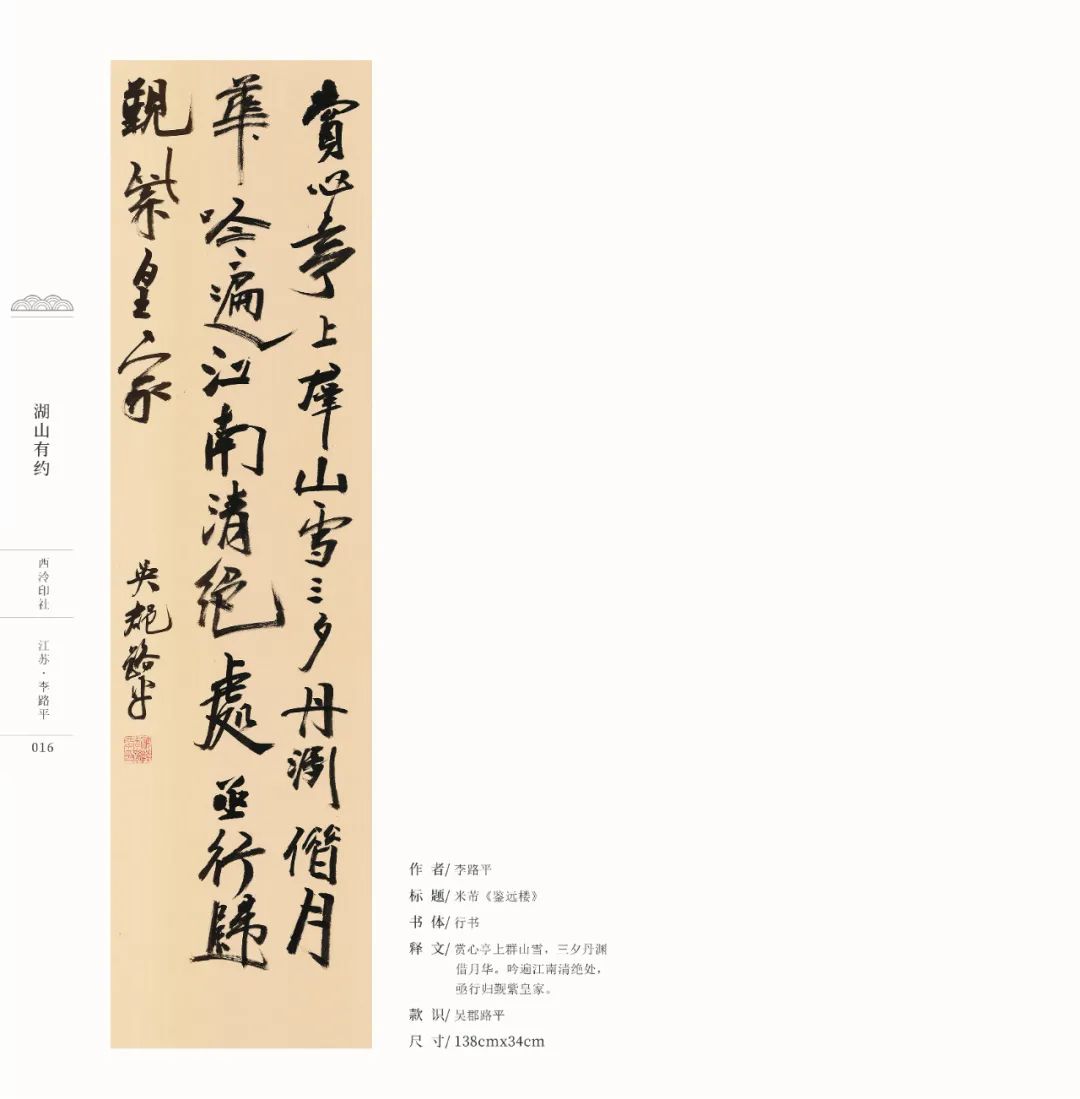 賞心亭上羣山雪三夕丹渊借月
華吟遍江南清絶處亟行歸
覲紫皇家
吴郡路平
湖山有约
西泠印社
江苏·李路平
016
作 者/ 李路平
标 题/ 米芾《鉴远楼》
书 体/ 行书
释 文/ 赏心亭上群山雪，三夕丹渊
借月华。吟遍江南清绝处，
亟行归觐紫皇家。
款 识/ 吴郡路平
尺 寸/ 138cmx34cm